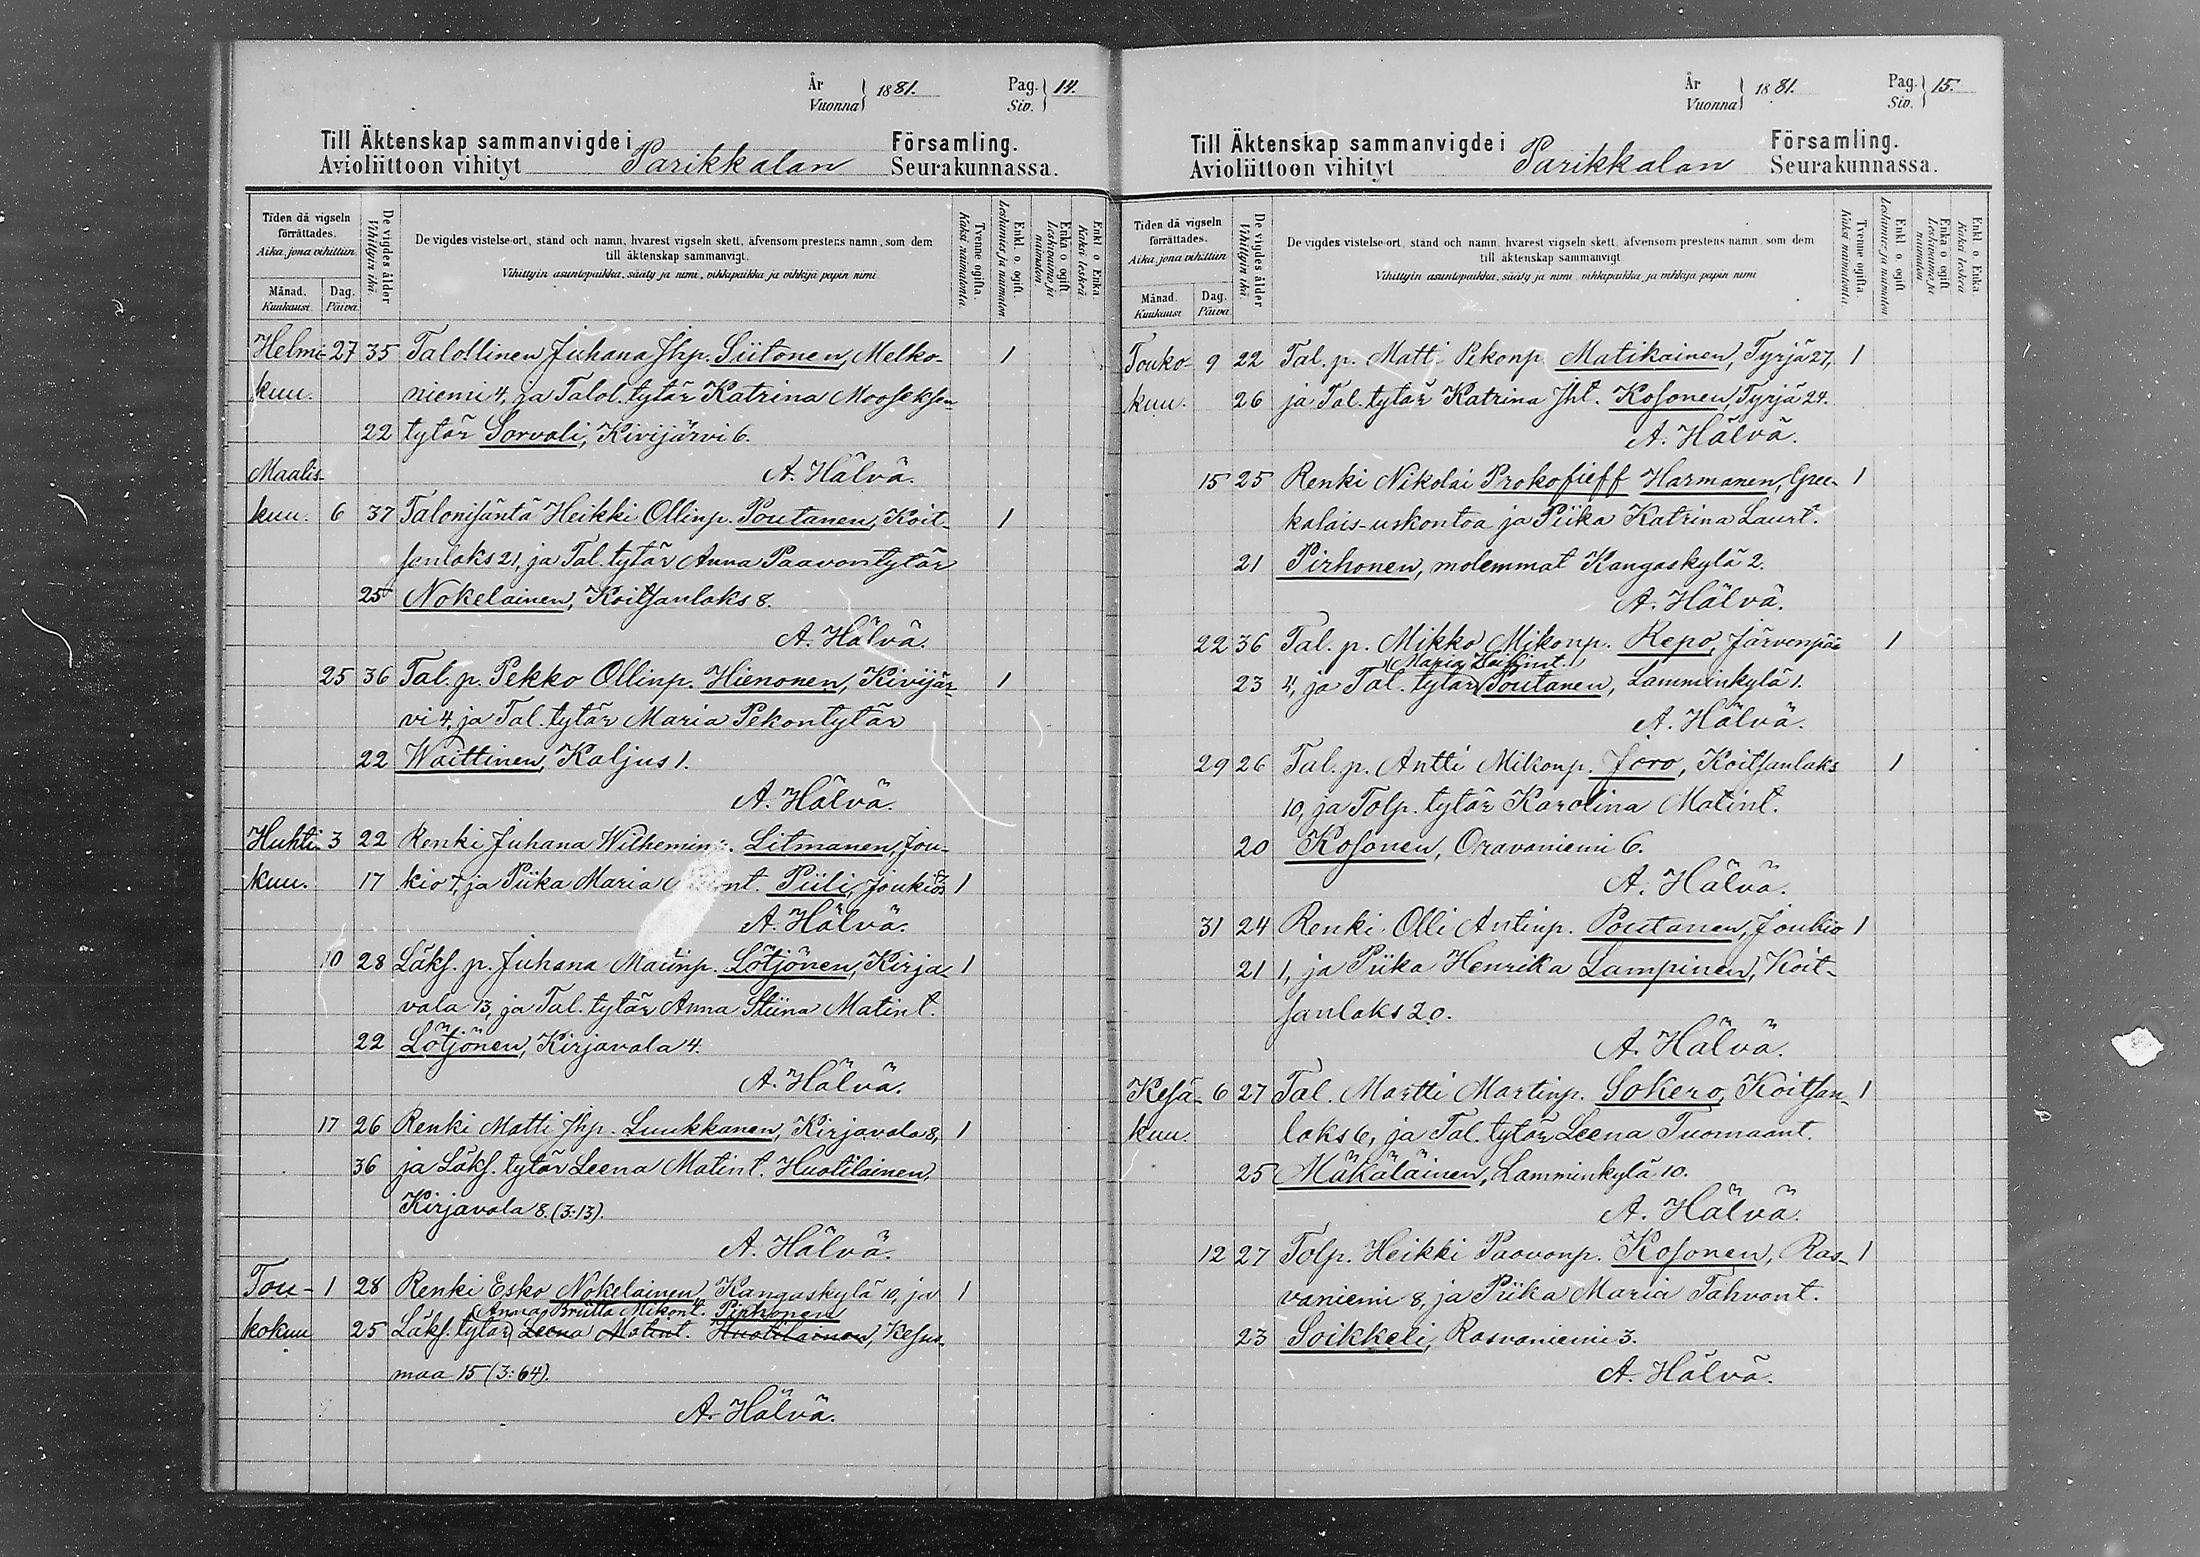 År
Vuonna 1881. Pag.
Siv. 14.
Till Äktenskap sammanvigde i Församling.
Avioliittoon vihityt Parikkalan Seurakunnassa.
Tiden då vigseln
förrättades.
Aika, jona vihittiin
Månad. Dag.
Kuukausi. Päivä
De vigdes ålder
Vihittyin ikä.
De vigdes vistelse-ort, stånd och namn, hvarest vigseln skett, äfvensom prestens namn, som dem
till äktenskap sammanvigt.
Vihittyin asuntopaikka, sääty ja nimi, vihkipaikka ja vihkijä papin nimi
Tvenne ogifta.
Kaksi naimatonta.
Enkl. o. ogift.
Leskimies ja naimaton
Enka o. ogift
Leskivaimo ja
naimaton
Enkl. o. Enka
Kaksi leskeä
Helmi- 27 35 Talollinen Juhana Jhp. Siitonen, Melko- 1
kuu. niemi 4, ja Talol. tytär Katrina Mooseksen
22 tytär Sorvali, Kivijärvi 6.
Maalis- A. Hälvä.
kuu. 6 37 Talonisäntä Heikki Ollinp. Poutanen, Koit- 1
sanlaks 21, ja Tal. tytär Anna Paavontytär
25 Nokelainen, Koitsanlaks 8.
A. Hälvä.
25 36 Tal. p. Pekko Ollinp. Hienonen, Kivijär- 1
vi 4, ja Tal. tytär Maria Pekontytär
22 Waittinen, Kaljus 1.
A. Hälvä.
Huhti- 3 22 Renki Juhana Wilhemin Litmanen, Jou-
kuu. 17 kio 7, ja Piika Maria Piili, Joukio 1
A. Hälvä.
10 28 Läks. p. Juhana Matinp. Lötjönen, Kirja- 1
vala 13, ja Tal. tytär Anna Stiina Matint.
22 Lötjönen, Kirjavala 4.
A. Hälvä.
17 26 Renki Matti Jhp. Luukkanen, Kirjavala 8, 1
36 ja Läks. tytär Leena Matint. Huotilainen,
Kirjavala 8. (3:13).
A. Hälvä.
Tou- 1 28 Renki Esko Nokelainen, Kangaskylä 10, ja 1
Anna Briitta Mikont. Pirhonen
kokuu 25 Läks. tytär Leena Matint. Huotilainen, Kesus-
maa 15 (3:64).
A. Hälvä.
År
Vuonna 1881. Pag.
Siv. 15.
Till Äktenskap sammanvigde i Församling.
Avioliittoon vihityt Parikkalan Seurakunnassa.
Tiden då vigseln
förrättades.
Aika, jona vihittiin
Månad. Dag.
Kuukausi Päivä
De vigdes ålder
Vihittyin ikä.
De vigdes vistelse-ort, stånd och namn, hvarest vigseln skett, äfvensom prestens namn, som dem
till äktenskap sammanvigt
Vihittyin asuntopaikka, sääty ja nimi, vihkipaikka ja vihkijä papin nimi
Tvenne ogifta.
Kaksi naimatonta.
Enkl. o. ogift
Leskimies ja naimaton
Enka o. ogift
Leskivaimo ja
naimaton
Enkl. o. Enka.
Kaksi leskeä
Touko- 9 22 Tal. p. Matti Pekonp. Matikainen, Tyrjä 27, 1
kuu. 26 ja Tal. tytär Katrina Jht. Kosonen, Tyrjä 24.
A. Hälvä.
15 25 Renki Nikolai Prokofieff Harmanen, Gree- 1
kalais-uskontoa ja Piika Katrina Laurt.
21 Pirhonen, molemmat Kangaskylä 2.
A. Hälvä.
22 36 Tal. p. Mikko Mikonp. Repo, Järvenpää 1
Maria
23 4, ja Tal. tytär Poutanen, Lamminkylä 1.
A. Hälvä.
29 26 Tal. p. Antti Mikonp. Joro, Koitsanlaks 1
10, ja Tolp. tytär Karolina Matint.
20 Kosonen, Oravaniemi 6.
A. Hälvä.
31 24 Renki Olli Antinp. Poutanen, Joukio 1
21 1, ja Piika Henrika Lampinen, Koit-
sanlaks 20.
A. Hälvä.
Kesä- 6 27 Tal. Martti Martinp. Sokero, Koitsan- 1
kuu. laks 6, ja Tal. tytär Leena Tuomaant.
25 Mäkäläinen, Lamminkylä 10.
A. Hälvä.
12 27 Tolp. Heikki Paavonp. Kosonen, Ras- 1
vaniemi 8, ja Piika Maria Tahvont.
23 Soikkeli, Rasvaniemi 3.
A. Hälvä.